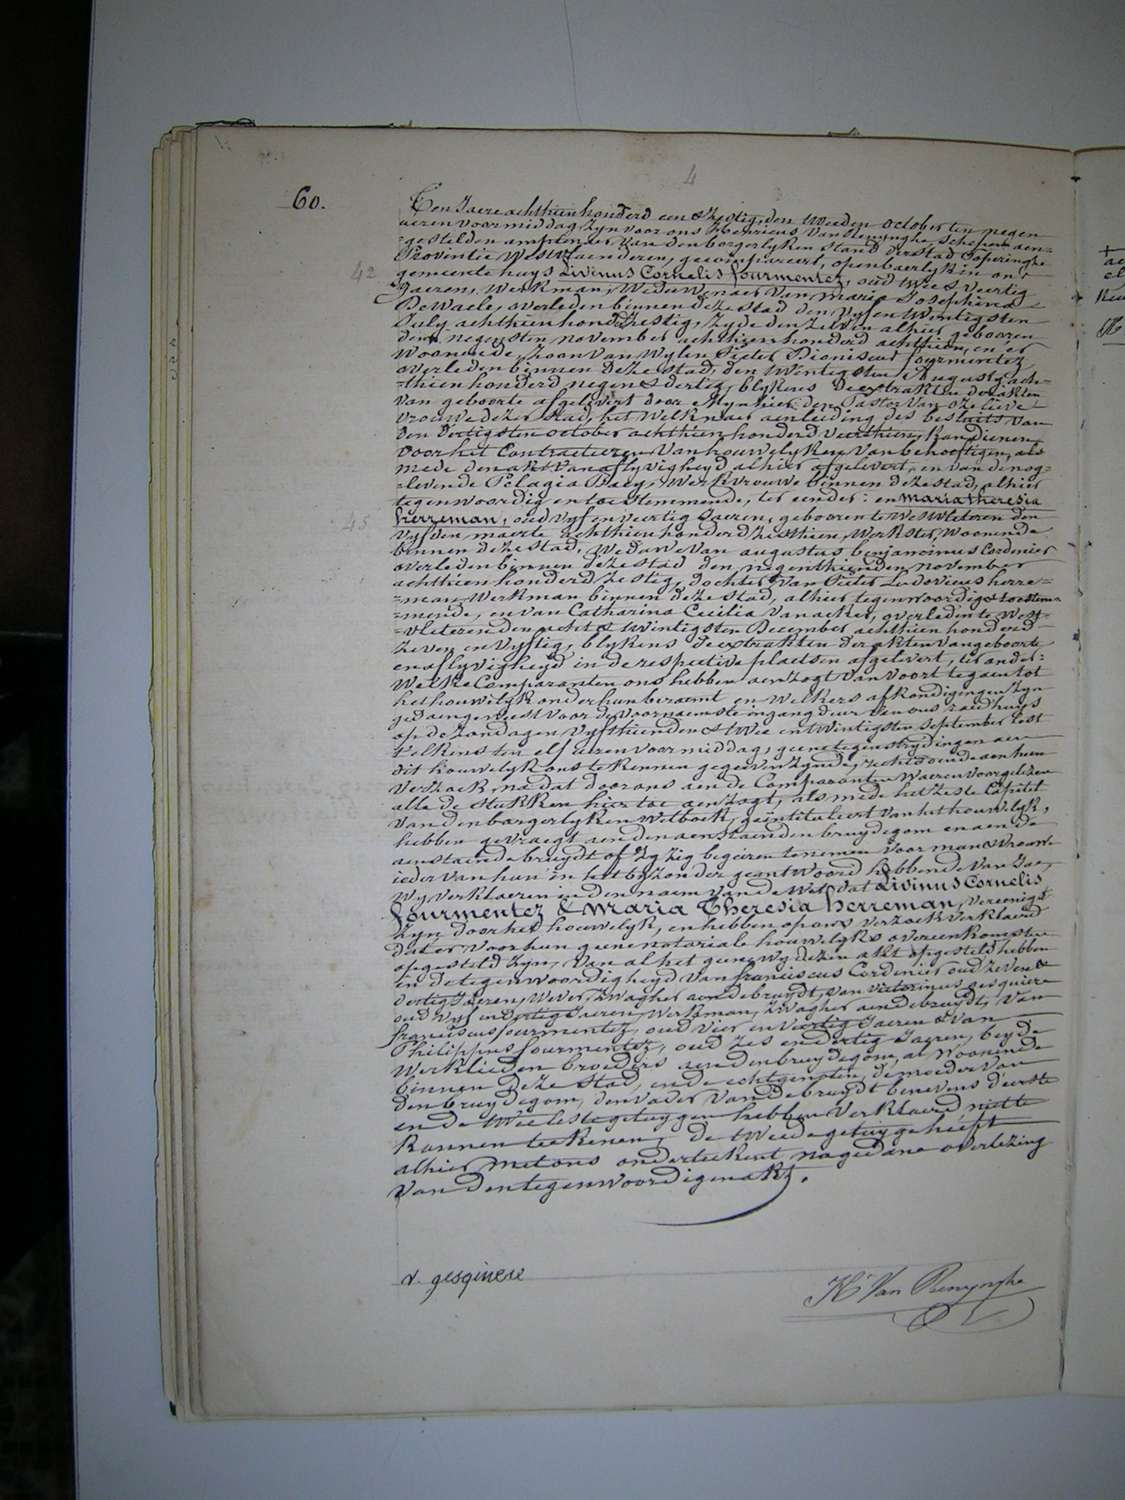 4
60.
Ten Jaere achthien honderd een & Zestig, den tweeden october ten negen
ueren voormiddag, zyn voor ons Henricus Van Renynghe, schepen aen-
=gestelden amptenaer van den borgerlyken stand der stad Poperinghe
Proventie Westvlaenderen, gecompareert, openbaerlyk in ons
42
gemeente huys Livinus Cornelis fourmentez, oud twee & veertig
Jaeren, Werkman, Weduwenaer van Maria Josephina
De Waele, overleden binnen deze stad den vyf en twintigsten
July achthien hond. Zestig, zynde den zelven alhier gebooren
den negensten november achthien honderd achthien, en er
woonende, zoon van wylen Pieter Dionisius fourmentez
overleden binnen deze stad, den twintigsten Augusty ach-
=thien honderd negen & dertig, blykens de extrakten der akten
van geboorte afgelevert door Mynheer den Pastor van O. L. lieve
vrouwe dezer stad, het welk naer aenleiding des besluits van
den dertigsten october achthien honderd veerthien, kan dienen
voor het Contracteeren van houwelyken van behoeftigen, als
mede den akt van aflyvigheyd alhier afgelevert, en van de nog
=levende Pelagia Baey, Werkvrouwe binnen deze stad, alhier
tegenwoordig en toestemmende, ter eender: en Maria theresia
45
herreman, oud vyf en veertig Jaeren, gebooren te Westvleteren den
vyfden maerte achthien honderd zesthien, Werkster, Woonende
binnen deze stad, Weduwe van augustus benjaminus Cordenier
overleden binnen deze stad den negenthienden november
achthien honderd zestig, dochter van Pieter Ludovicus herre-
=man, Werkman binnen deze stad, alhier tegenwoordig & toestem-
=mende, en van Catharina Cecilia Vanacker, overleden te West-
=vleteren den acht & twintigsten December achthien honderd
zeven en vyftig, blykens de extrakten der akten van geboorte
en aflyvigheyd in de respective plaetsen afgelevert, ter ander:
Welke Comparanten ons hebben aenzogt van voort te gaen tot
het houwelyk onder hun beraemt en welkers afkondigingen zyn
gedaen geweest voor de voornaemste ingang deur van ons raedhuys
op de zondagen vyfthienden & twee en twintigsten september lest
telkens ten elf ueren voormiddag, geene tegenstrydingen aen
dit houwelyk ons te kennen gegeven zynde, rechtdoende aen hun
Verzoek, na dat door ons aen de Comparanten waeren voorgelezen
alle de stukken hier toe aenzogt, als mede het zeste Capittel
van den borgerlyken Wetboek, geïntituleert van het houwelyk,
hebben gevraegt aen den aenstaenden bruydegom en aen de
aenstaende bruydt of zy zig begeiren te nemen voor man & vrouw
ieder van hun in het byzonder geantwoord hebbende van Jae,
Wy verklaeren in den naem van de Wet, dat Livinus Cornelis
fourmentez & Maria Theresia herreman, vereenigd
zyn door het houwelyk, en hebben op ons verzoek verklaerd
dat er voor hun geene notariale houwelyks overeenkomsten
opgesteld zyn, van al het geene wy dezen akt opgesteld hebben
in de tegenwoordigheyd van franciscus Cordenier oud zeven &
dertig Jaeren, Wever, Zwagher aen de bruydt, van Victorinus gesquiere
oud vyf en dertig Jaeren, Werkman, Zwagher aen de bruydt, van
franciscus fourmentez, oud vier en veertig Jaeren & van
Philippus fourmentez, oud zes en dertig Jaeren, beyde
Werklieden broeders aen den bruydegom, al woonende
binnen deze stad, en de echtgenoten, de moeder van
den bruydegom, den vader van de bruydt benevens d'eerste
en de twee leste getuygen hebben verklaerd niet te
kannen teekenen, de tweede getuyge heeft
alhier met ons onderteekent, na gedane overlezing
van den tegenwoordigen akt.
v. gesqiuere
H. Van Renynghe